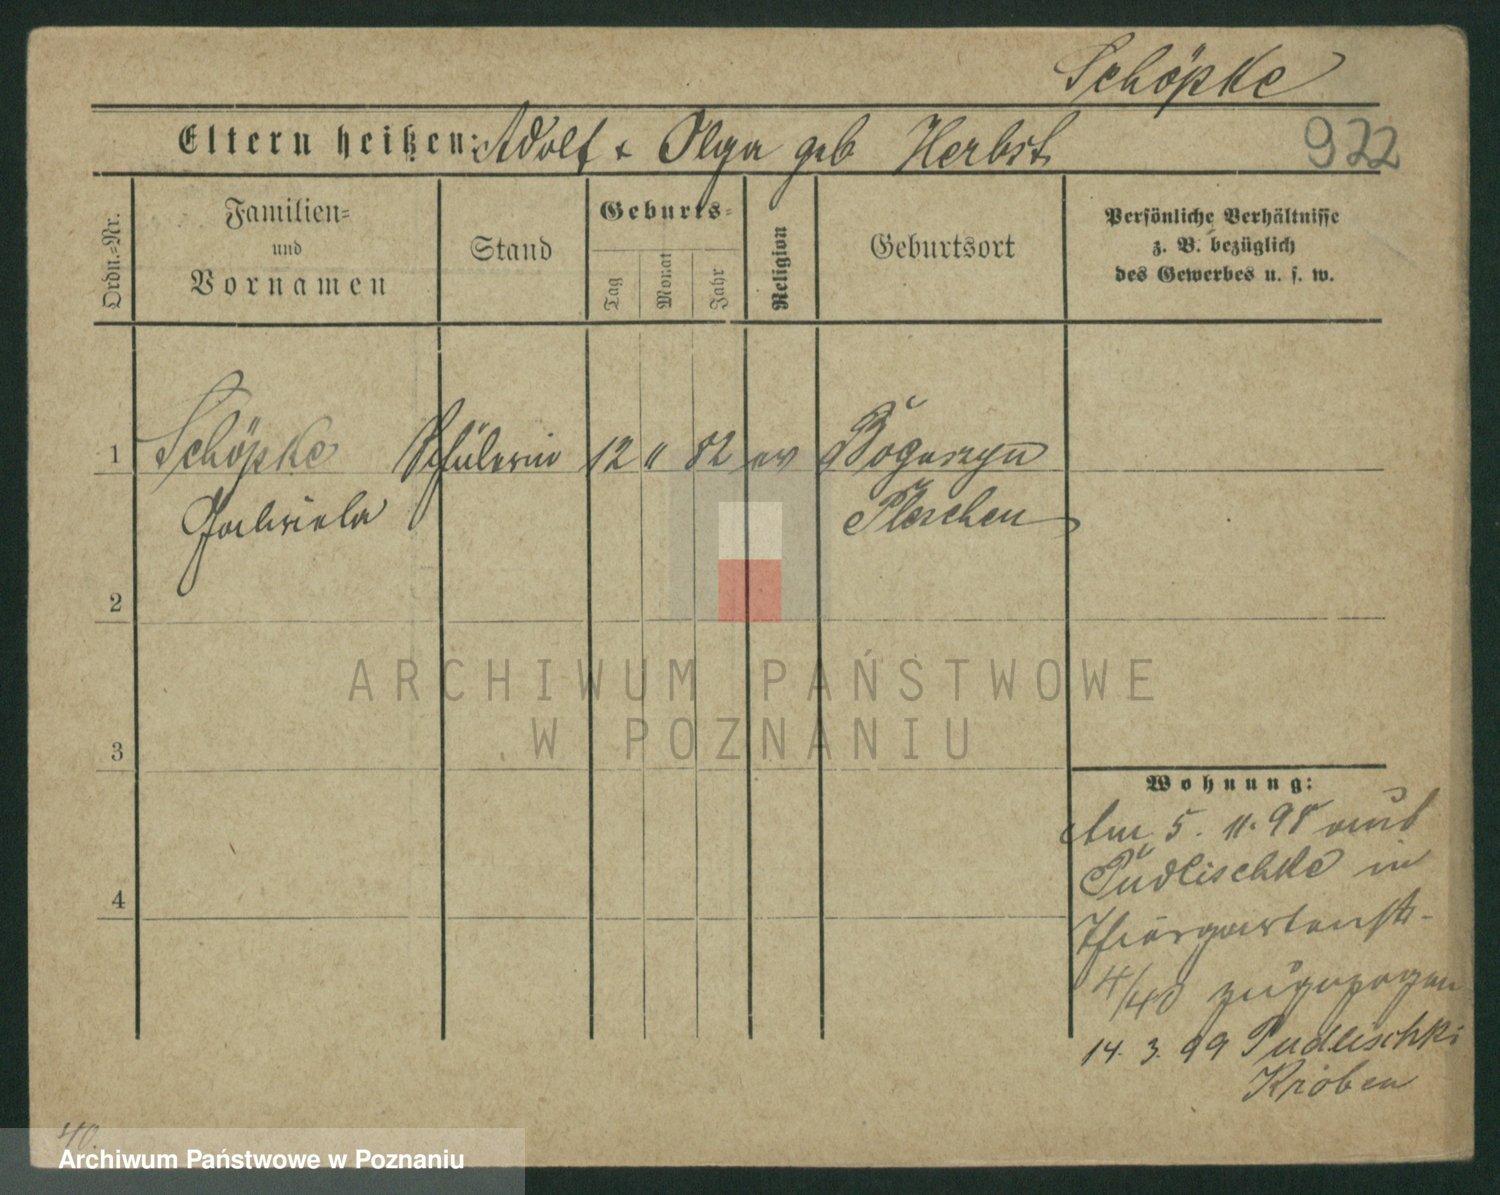 Schöpke
Eltern heißen: Adolf + Olga geb Herbst
922
Ordn.-Nr.
Familien-
und
Vornamen
Stand
Geburts-
Tag
Monat
Jahr
Religion
Geburtsort
Persönliche Verhältnisse
z. B. bezüglich
des Gewerbes u. s. w.
1 Schöpke Schülerin 12 " 82 ev Boguszyn
Gabriela Pleschen
2
3
4
ARCHIWUM PAŃSTWOWE
W POZNANIU
Wohnung:
Am 5. 11. 98 aus
Pudlischke in
Thiergartenstr.
4/40 zugezogen
14. 3. 99 Pudlischki
Kröben
40.
Archiwum Państwowe w Poznaniu